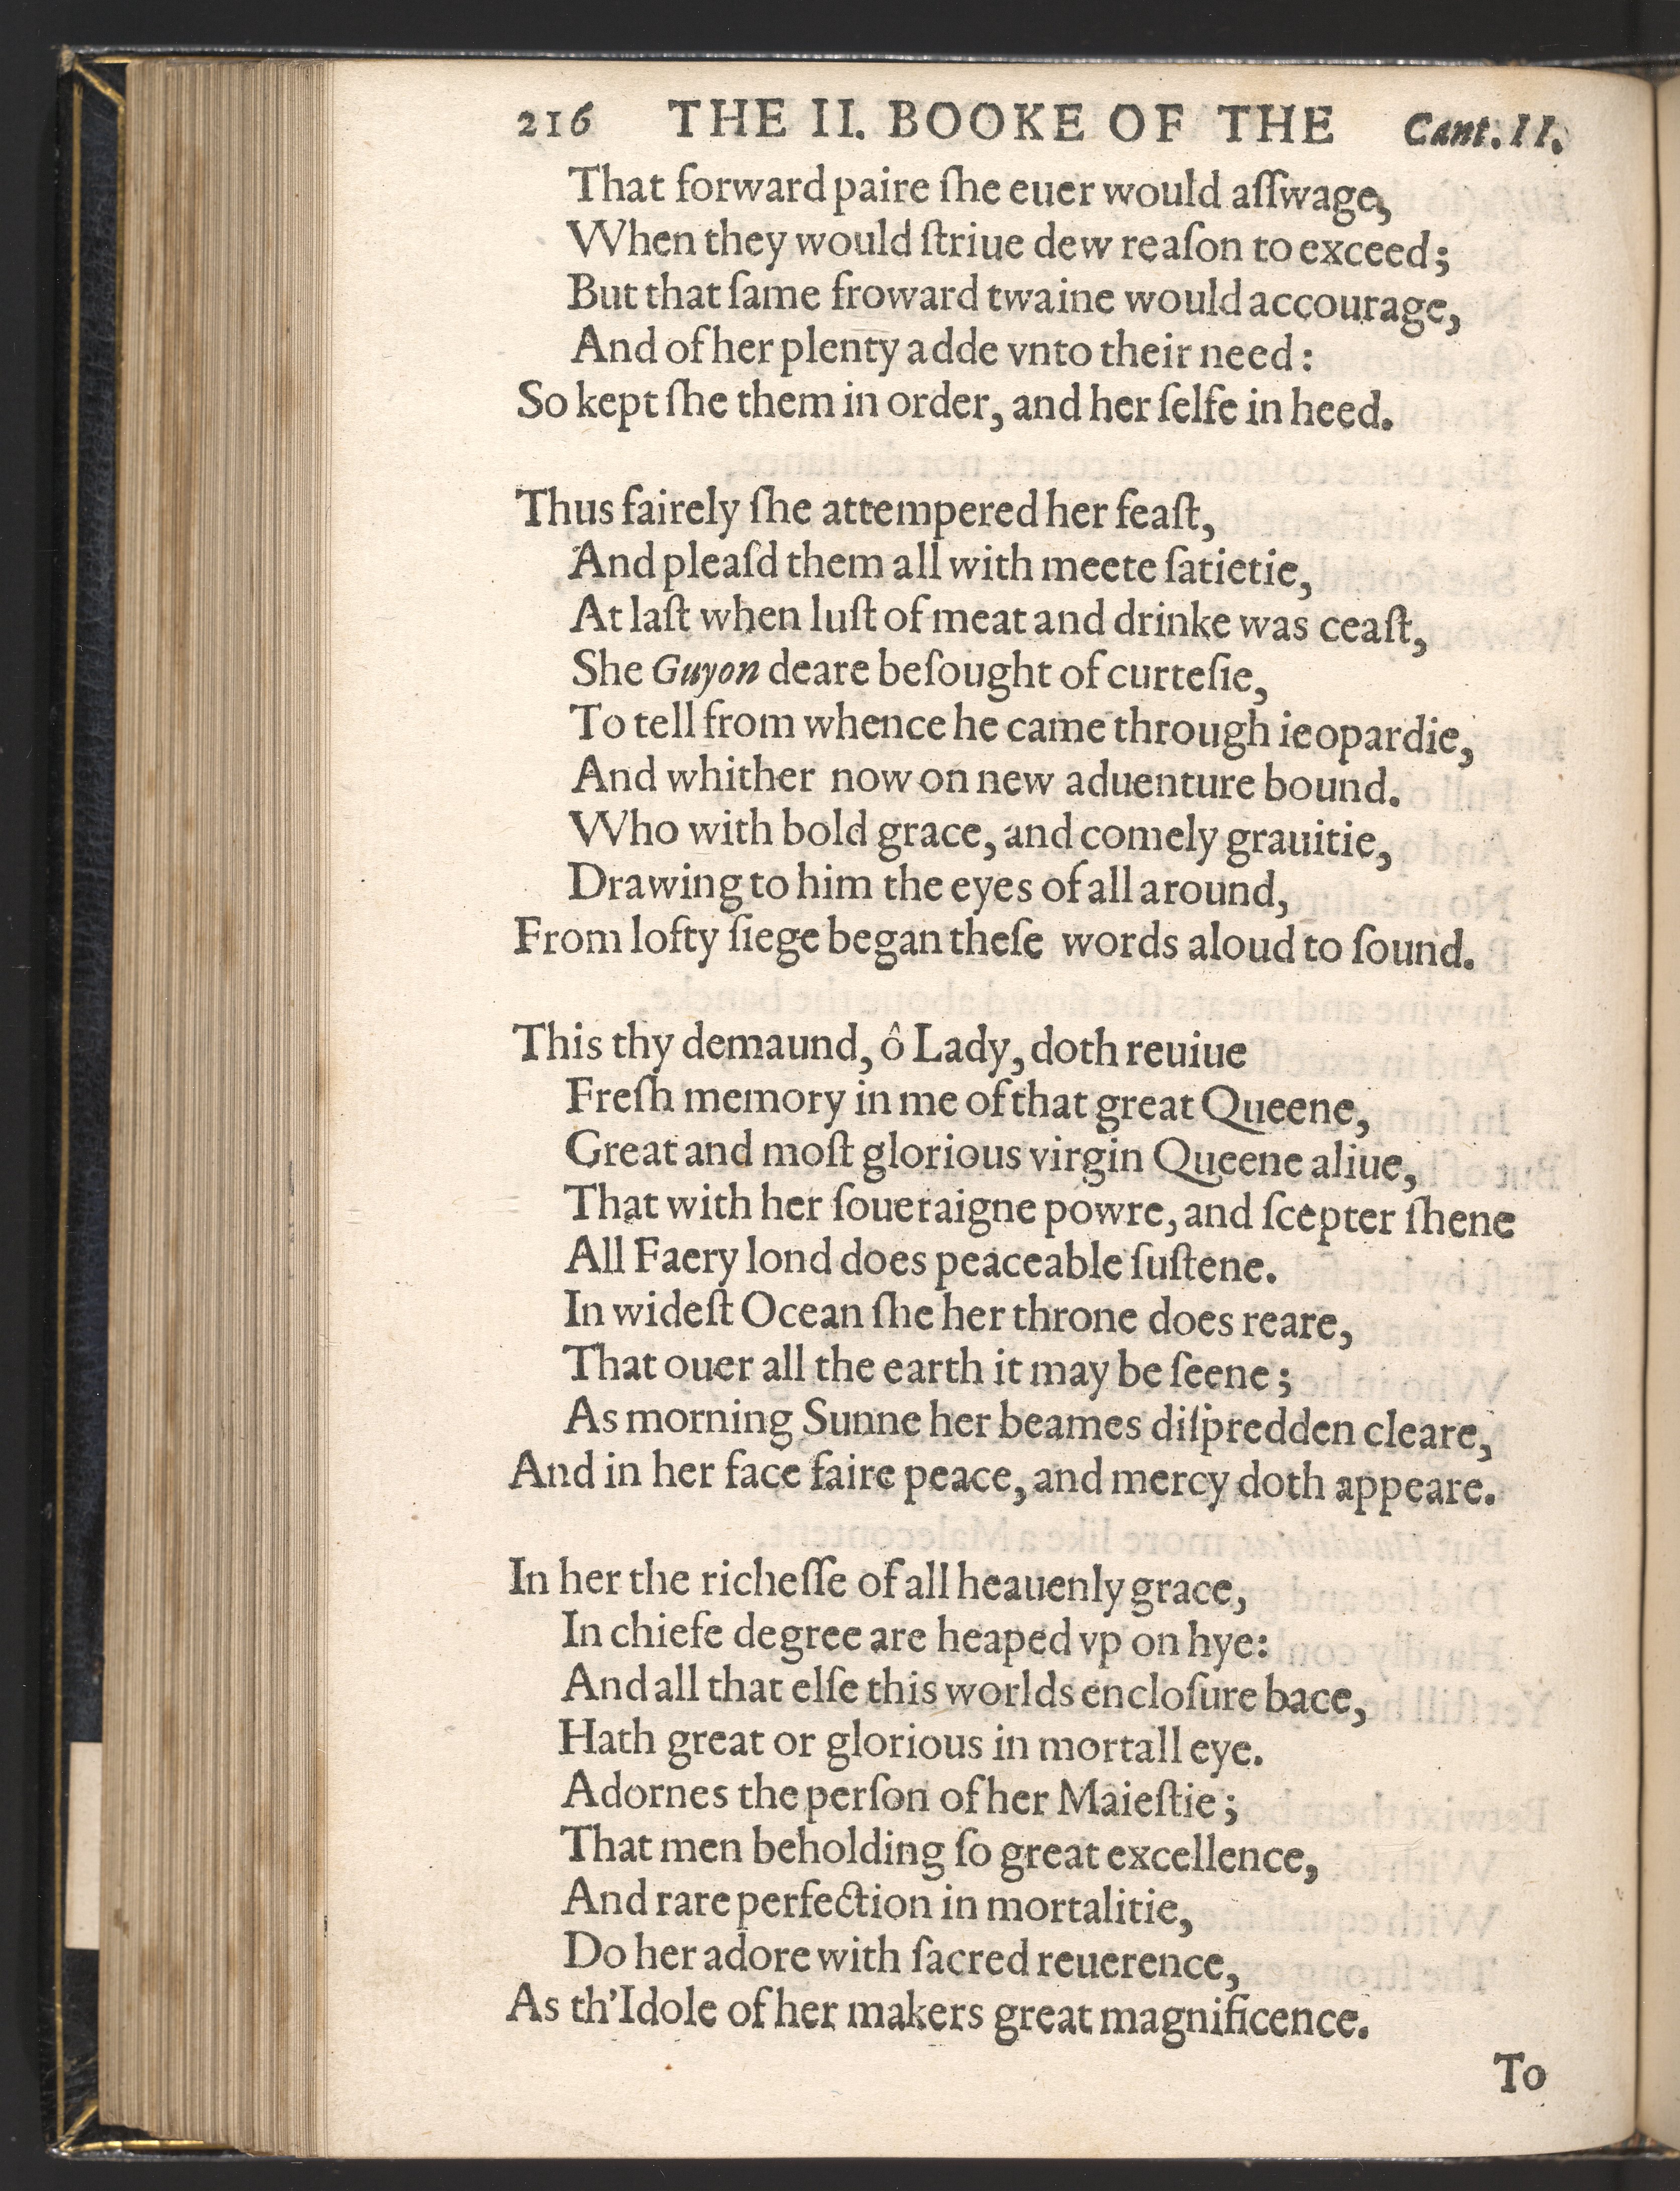 216 THE II. BOOKE OF THE Cant. II.
That forward paire ſhe euer would aſſwage,
When they would ſtriue dew reaſon to exceed;
But that ſame froward twaine would accourage,
And of her plenty adde vnto their need:
So kept ſhe them in order, and her ſelfe in heed.
Thus fairely ſhe attempered her feaſt,
And pleaſd them all with meete ſatietie,
At laſt when luſt of meat and drinke was ceaſt,
She Guyon deare beſought of curteſie,
To tell from whence he came through ieopardie,
And whither now on new aduenture bound.
Who with bold grace, and comely grauitie,
Drawing to him the eyes of all around,
From lofty ſiege began theſe words aloud to ſound.
This thy demaund, ô Lady, doth reuiue
Freſh memory in me of that great Queene,
Great and moſt glorious virgin Queene aliue,
That with her ſoueraigne powre, and ſcepter ſhene
All Faery lond does peaceable ſuſtene.
In wideſt Ocean ſhe her throne does reare,
That ouer all the earth it may be ſeene;
As morning Sunne her beames diſpredden cleare,
And in her face faire peace, and mercy doth appeare.
In her the richeſſe of all heauenly grace,
In chiefe degree are heaped vp on hye:
And all that elſe this worlds encloſure bace,
Hath great or glorious in mortall eye.
Adornes the perſon of her Maieſtie;
That men beholding ſo great excellence,
And rare perfection in mortalitie,
Do her adore with ſacred reuerence,
As th'Idole of her makers great magnificence.
To